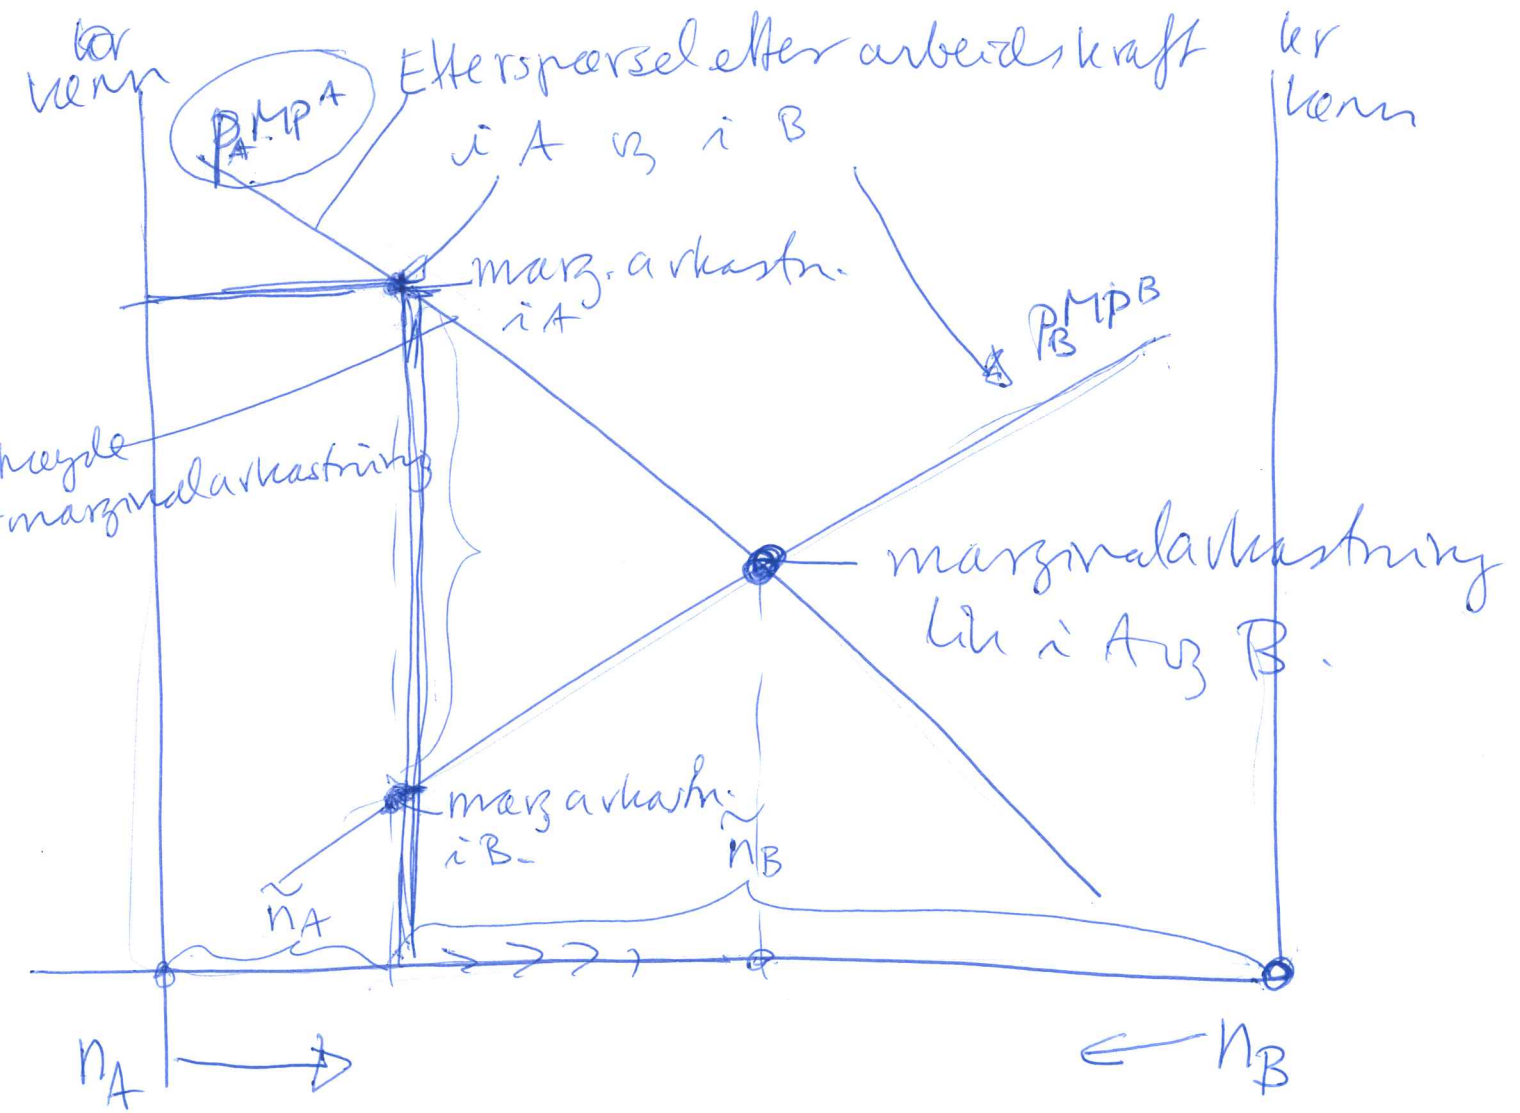 kr
Etterspørsel etter arbeidskraft
i A og i B
P_A MP^A
marg. avkastn.
i A
P_B MP^B
marginalavkastning
marginalavkastning
lik i A og B.
marg avkastn.
i B
ñ_A
ñ_B
n_A
n_B